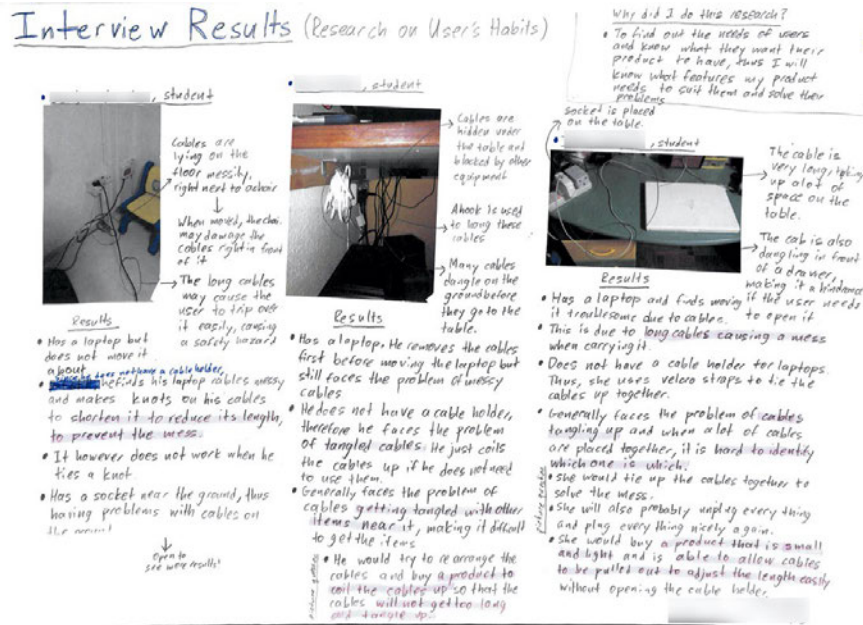 Interview Results (Research on User's Habits)
Why did I do this research?
• To find out the needs of users
and know what they want their
product to have, thus I will
know what features my product
needs to suit them and solve their
problems
, student
Cables are
lying on the
floor messily,
right next to a chair
When moved, the chair
may damage the
cables right in front
of it
The long cables
may cause the
user to trip over
it easily, causing
a safety hazard
Results
• Has a laptop but
does not move it
about
• Since he does not have a cable holder,
he finds his laptop cables messy
and makes knots on his cables
to shorten it to reduce its length,
to prevent the mess.
• It however does not work when he
ties a knot
• Has a socket near the ground, thus
having problems with cables on
the ground
open to
see more results!
, student
Cables are
hidden under
the table and
blocked by other
equipment
A hook is used
to hang these
cables
Many cables
dangle on the
ground before
they go to the
table.
Results
• Has a laptop. He removes the cables
first before moving the laptop but
still faces the problem of messy
cables
• He does not have a cable holder,
therefore he faces the problem
of tangled cables. He just coils
the cables up if he does not need
to use them.
• Generally faces the problem of
cables getting tangled with other
items near it, making it difficult
to get the items
• He would try to rearrange the
cables and buy a product to
coil the cables up so that the
cables will not get too long
and tangle up.
socket is placed
on the table.
, student
The cable is
very long, taking
up a lot of
space on the
table.
The cab is also
dangling in front
of a drawer,
making it a hindrance
if the user needs
to open it
Results
• Has a laptop and finds moving
it troublesome due to cables.
• This is due to long cables causing a mess
when carrying it.
• Does not have a cable holder for laptops.
Thus, she uses velcro straps to tie the
cables up together.
• Generally faces the problem of cables
tangling up and when a lot of cables
are placed together, it is hard to identify
which one is which.
• She would tie up the cables together to
solve the mess.
• She will also probably unplug every thing
and plug every thing nicely again.
• She would buy a product that is small
and light and is able to allow cables
to be pulled out to adjust the length easily
without opening the cable holder.